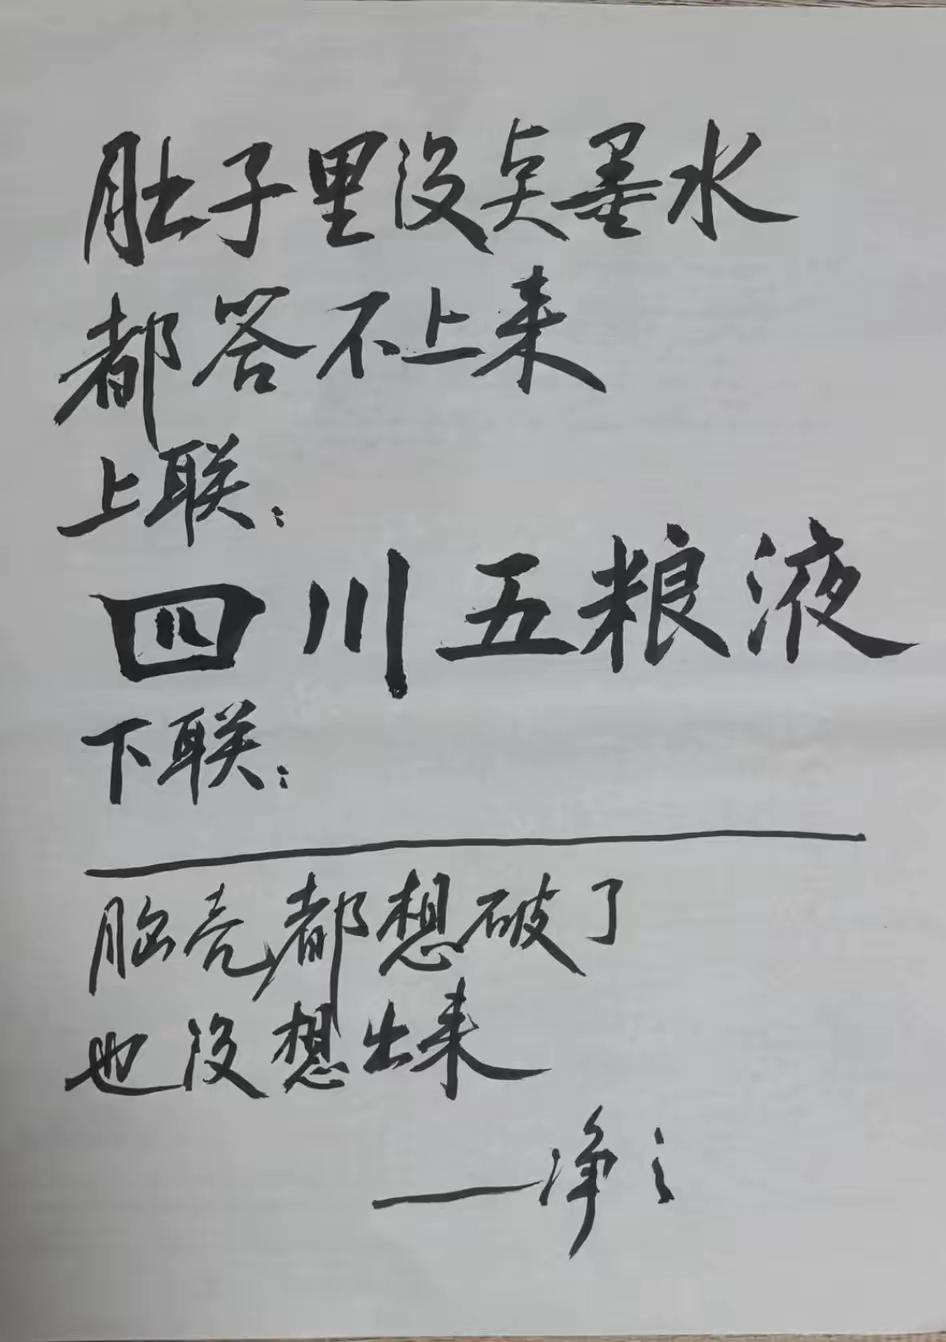 肚子里没点墨水
都答不上来
上联：
四川五粮液
下联：
脑壳都想破了
也没想出来
——净之